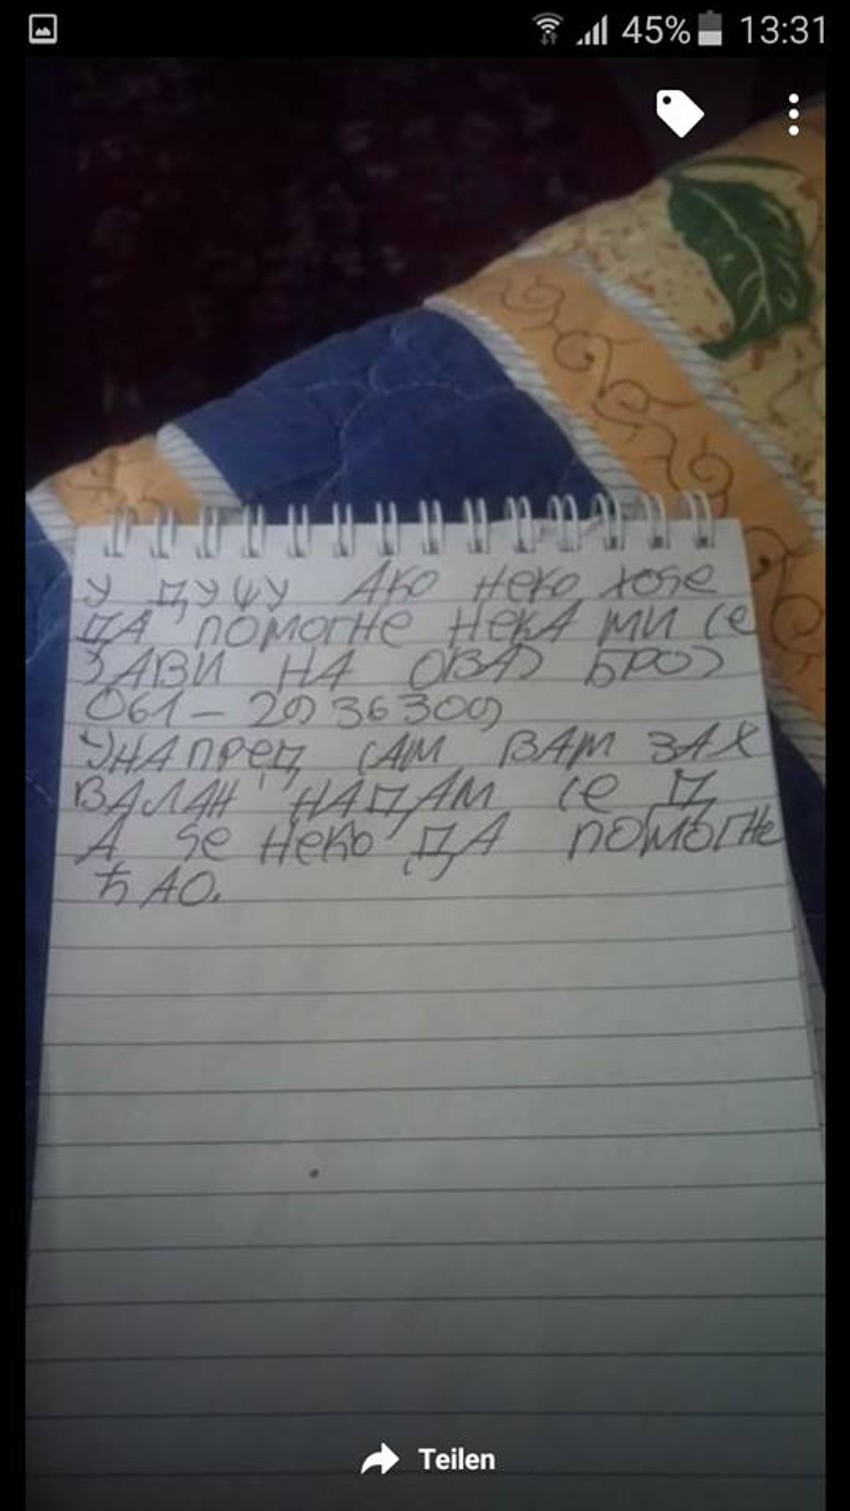 45% 13:31
У ДУШУ АКО НЕКО ХОЋЕ
ДА ПОМОГНЕ НЕКА МИ СЕ
ЈАВИ НА ОВАЈ БРОЈ
061-2936309
УНАПРЕД САМ ВАМ ЗАХ
ВАЛАН НАДАМ СЕ Д
А ЋЕ НЕКО ДА ПОМОГНЕ
ЋАО.
Teilen